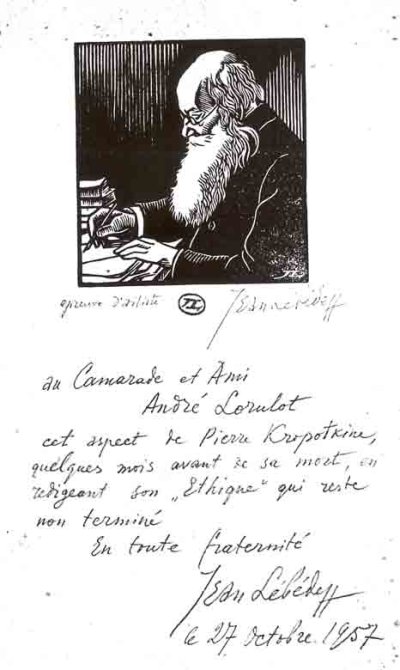 epreuve d'artiste
Jean Lébédeff
au Camarade et Ami
André Lorulot
cet aspect de Pierre Kropotkine,
quelques mois avant de sa mort, en
redigeant son „Ethique“ qui reste
non terminé
En toute fraternité
Jean Lébédeff
le 27 octobre 1957